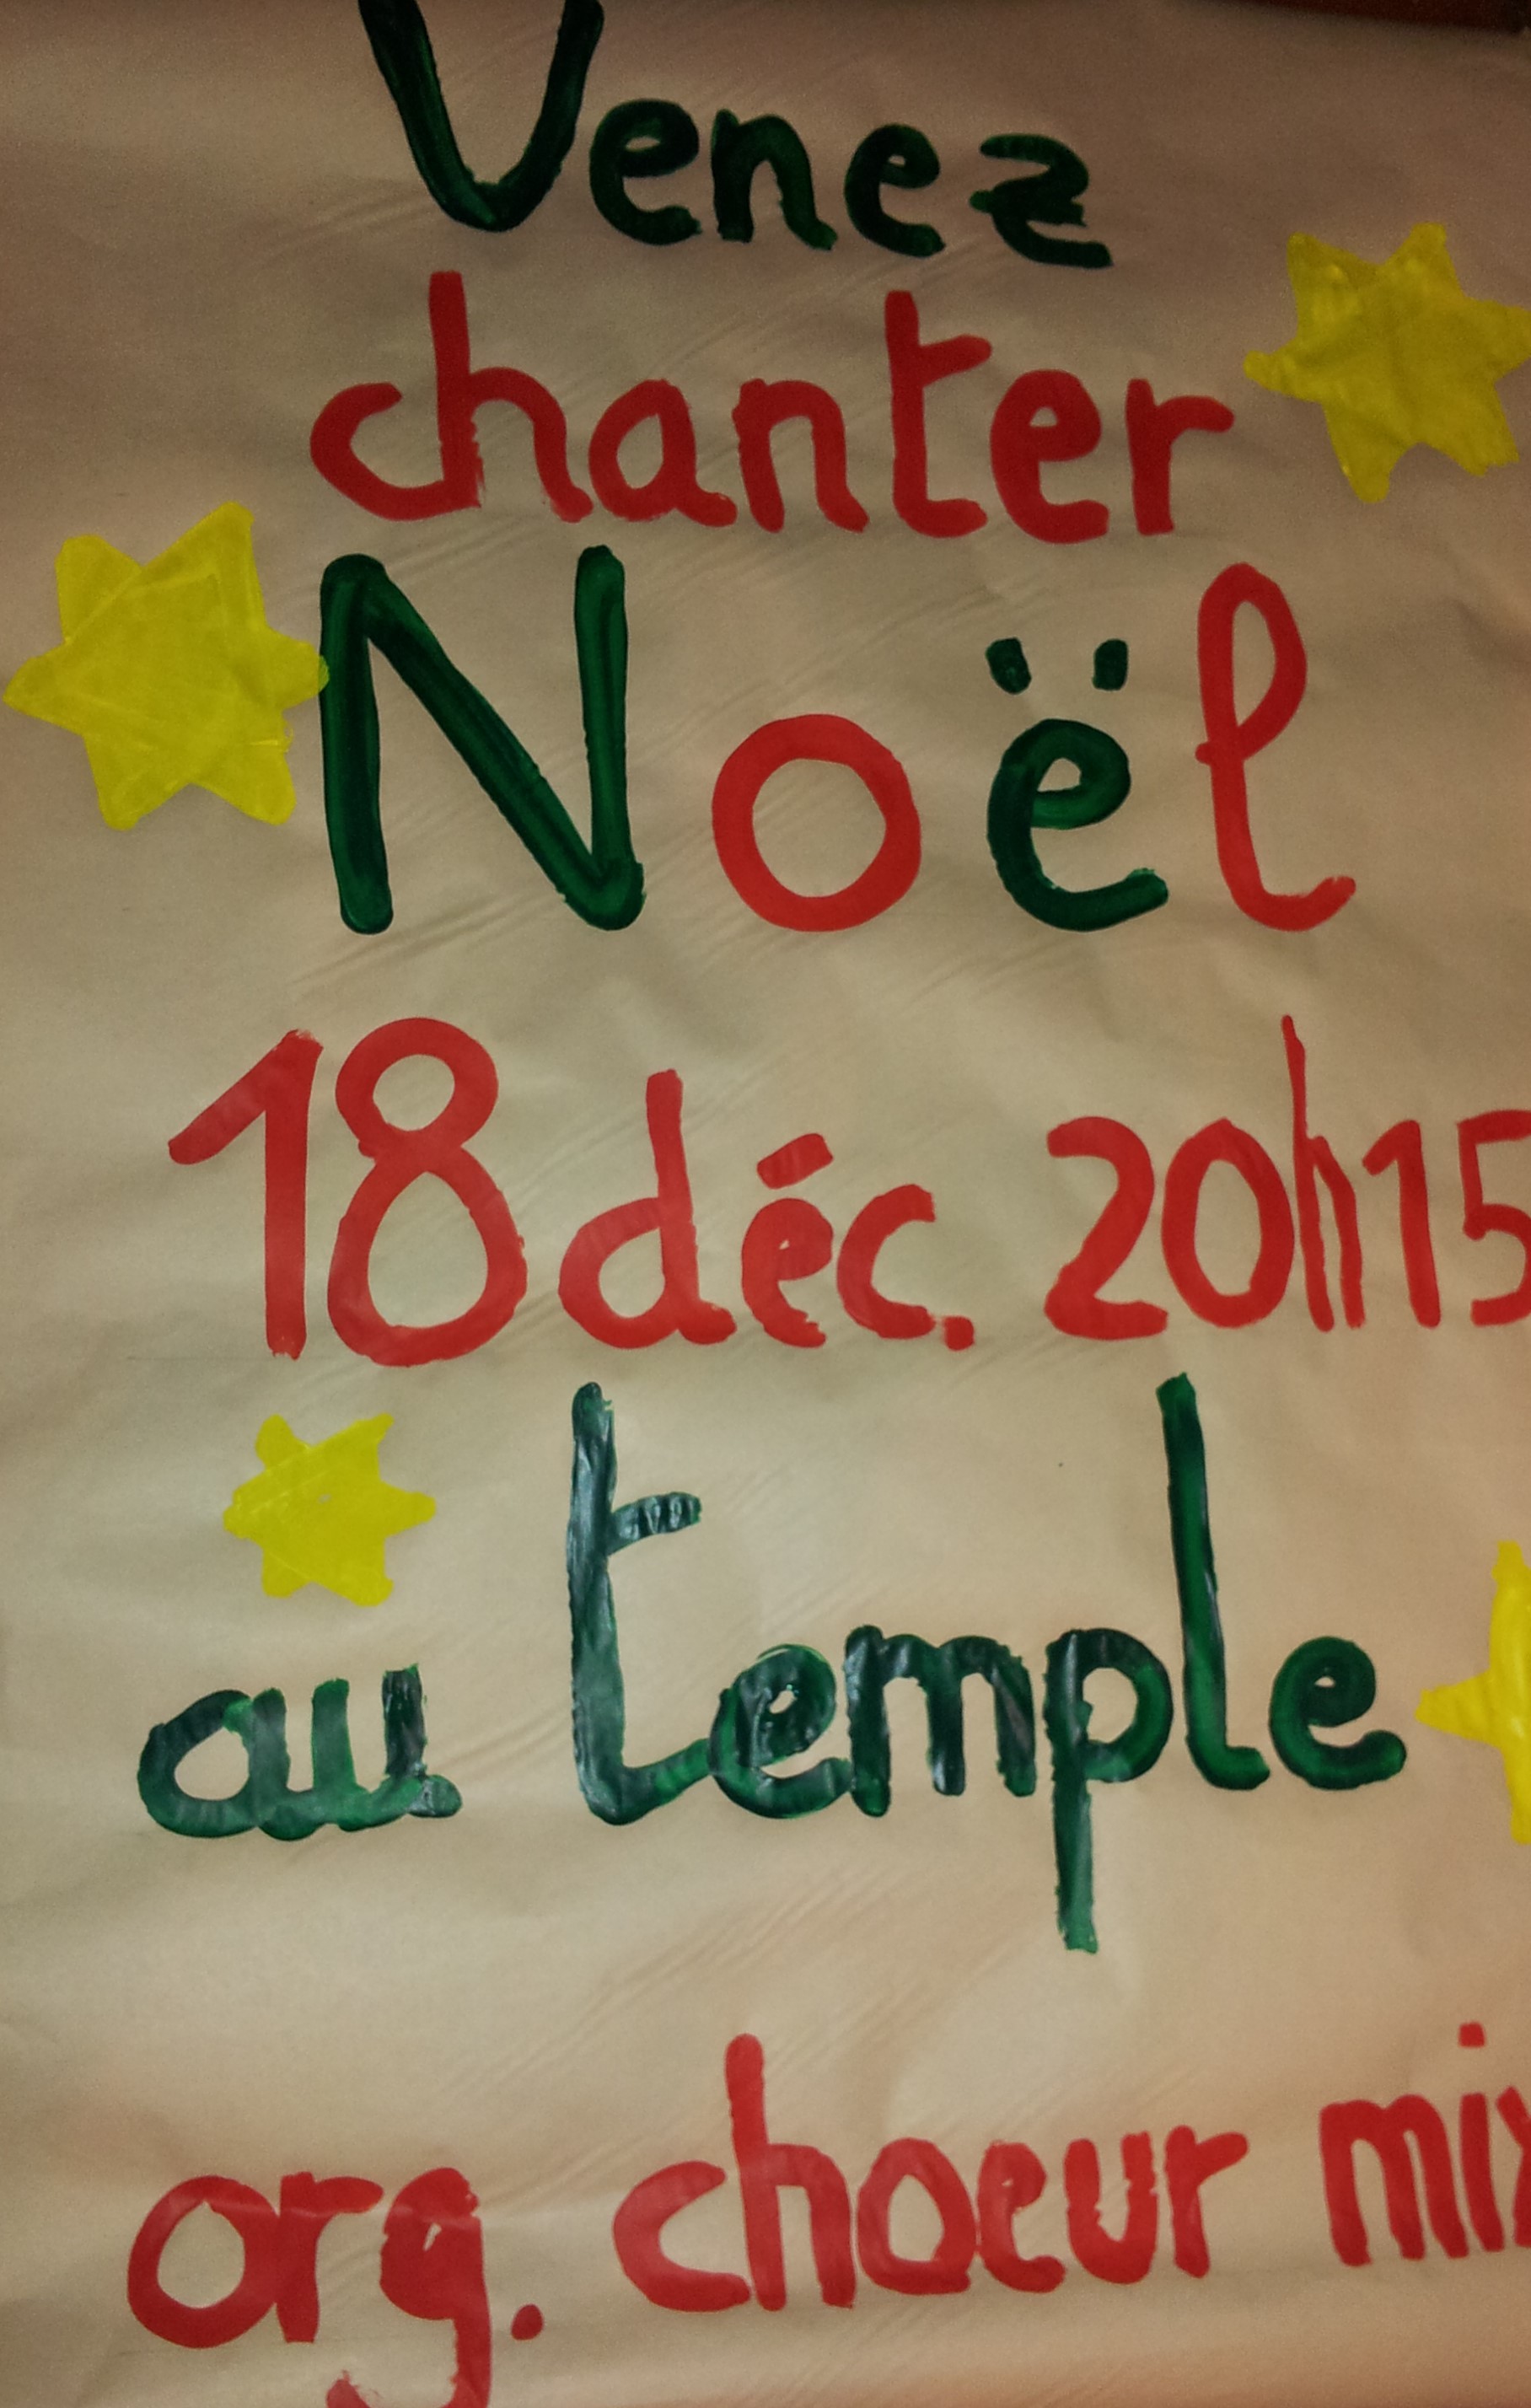 Venez
chanter
Noël
18 déc. 20h15
au temple
org. choeur mix